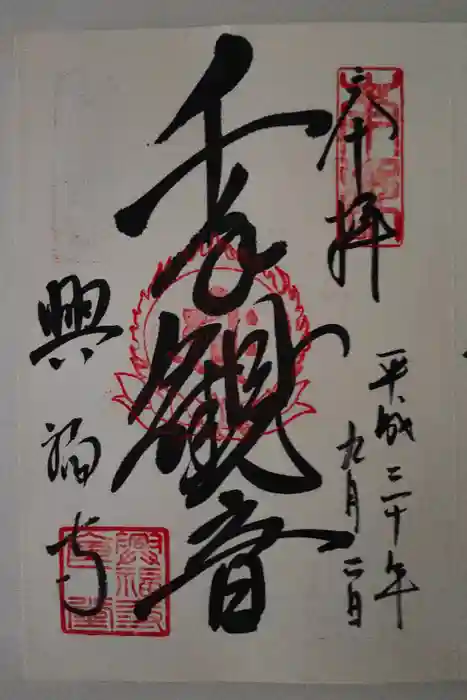 奉拝
平成三十年
九月二日
千手観音
興福寺